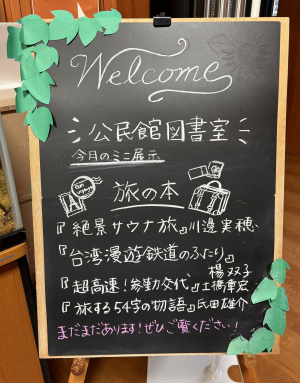 Welcome
公民館図書室
今月のミニ展示
旅の本
『絶景サウナ旅』川邊実穂
『台湾漫遊鉄道のふたり』
楊双子
『超高速!参勤交代』土橋章宏
『旅する54字の物語』氏田雄介
まだまだあります!ぜひご覧ください!